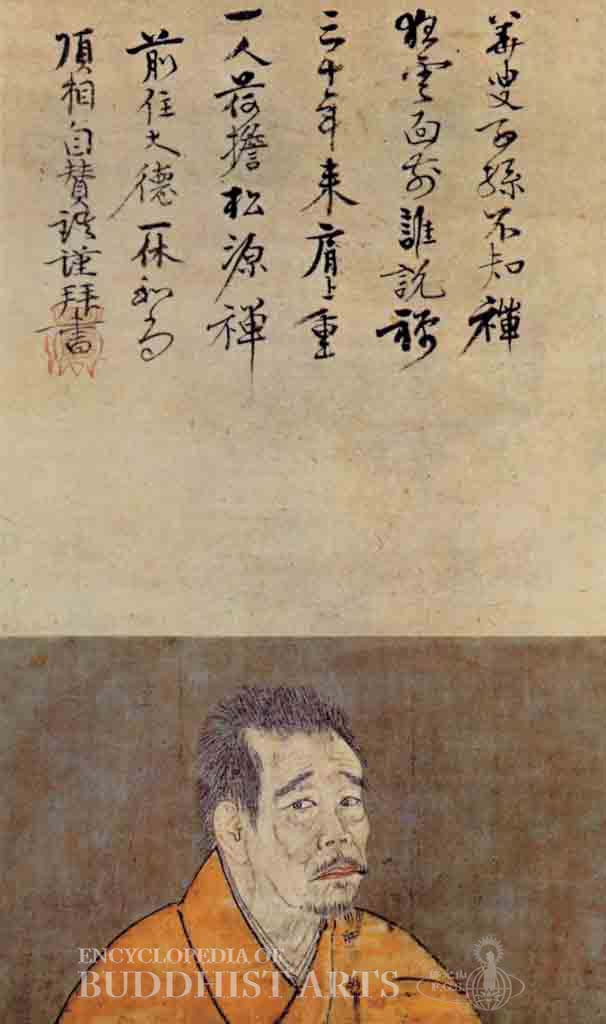 華叟子孫不知禅
狂雲面前誰説禅
三十年来肩上重
一人荷擔松源禅
前住大德一休和尚
頂相自賛謹拝書
ENCYCLOPEDIA OF
BUDDHIST ARTS